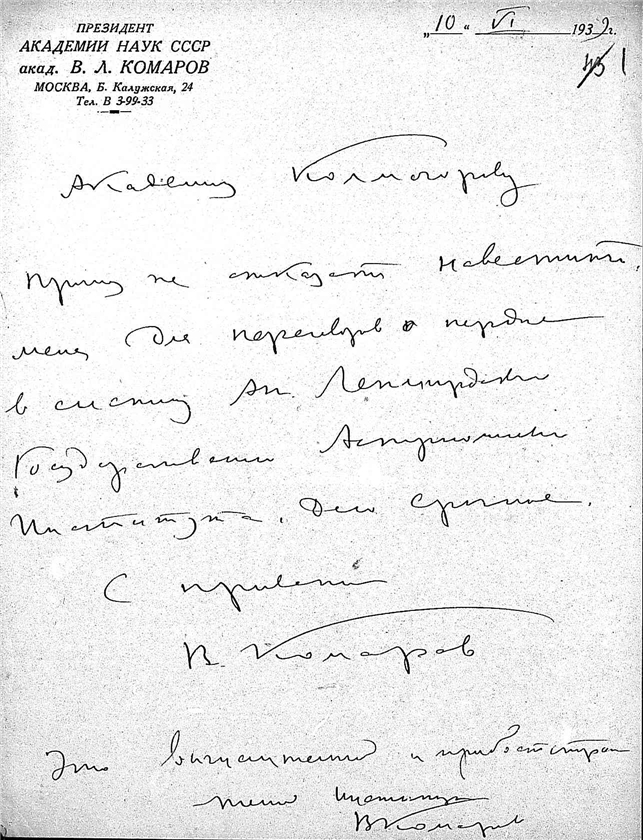 ПРЕЗИДЕНТ
АКАДЕМИИ НАУК СССР
акад. В. Л. КОМАРОВ
МОСКВА, Б. Калужская, 24
Тел. В 3-99-33
„10“ VI 1939 г.
Академику Колмогорову
Прошу не отказать навестить
меня для переговоров о передаче
в систему Ак. Ленинградского
Государственного Астрономического
Института. Дело срочное.
С приветом
В. Комаров
Это вычислительный и
Института
ВКомаров